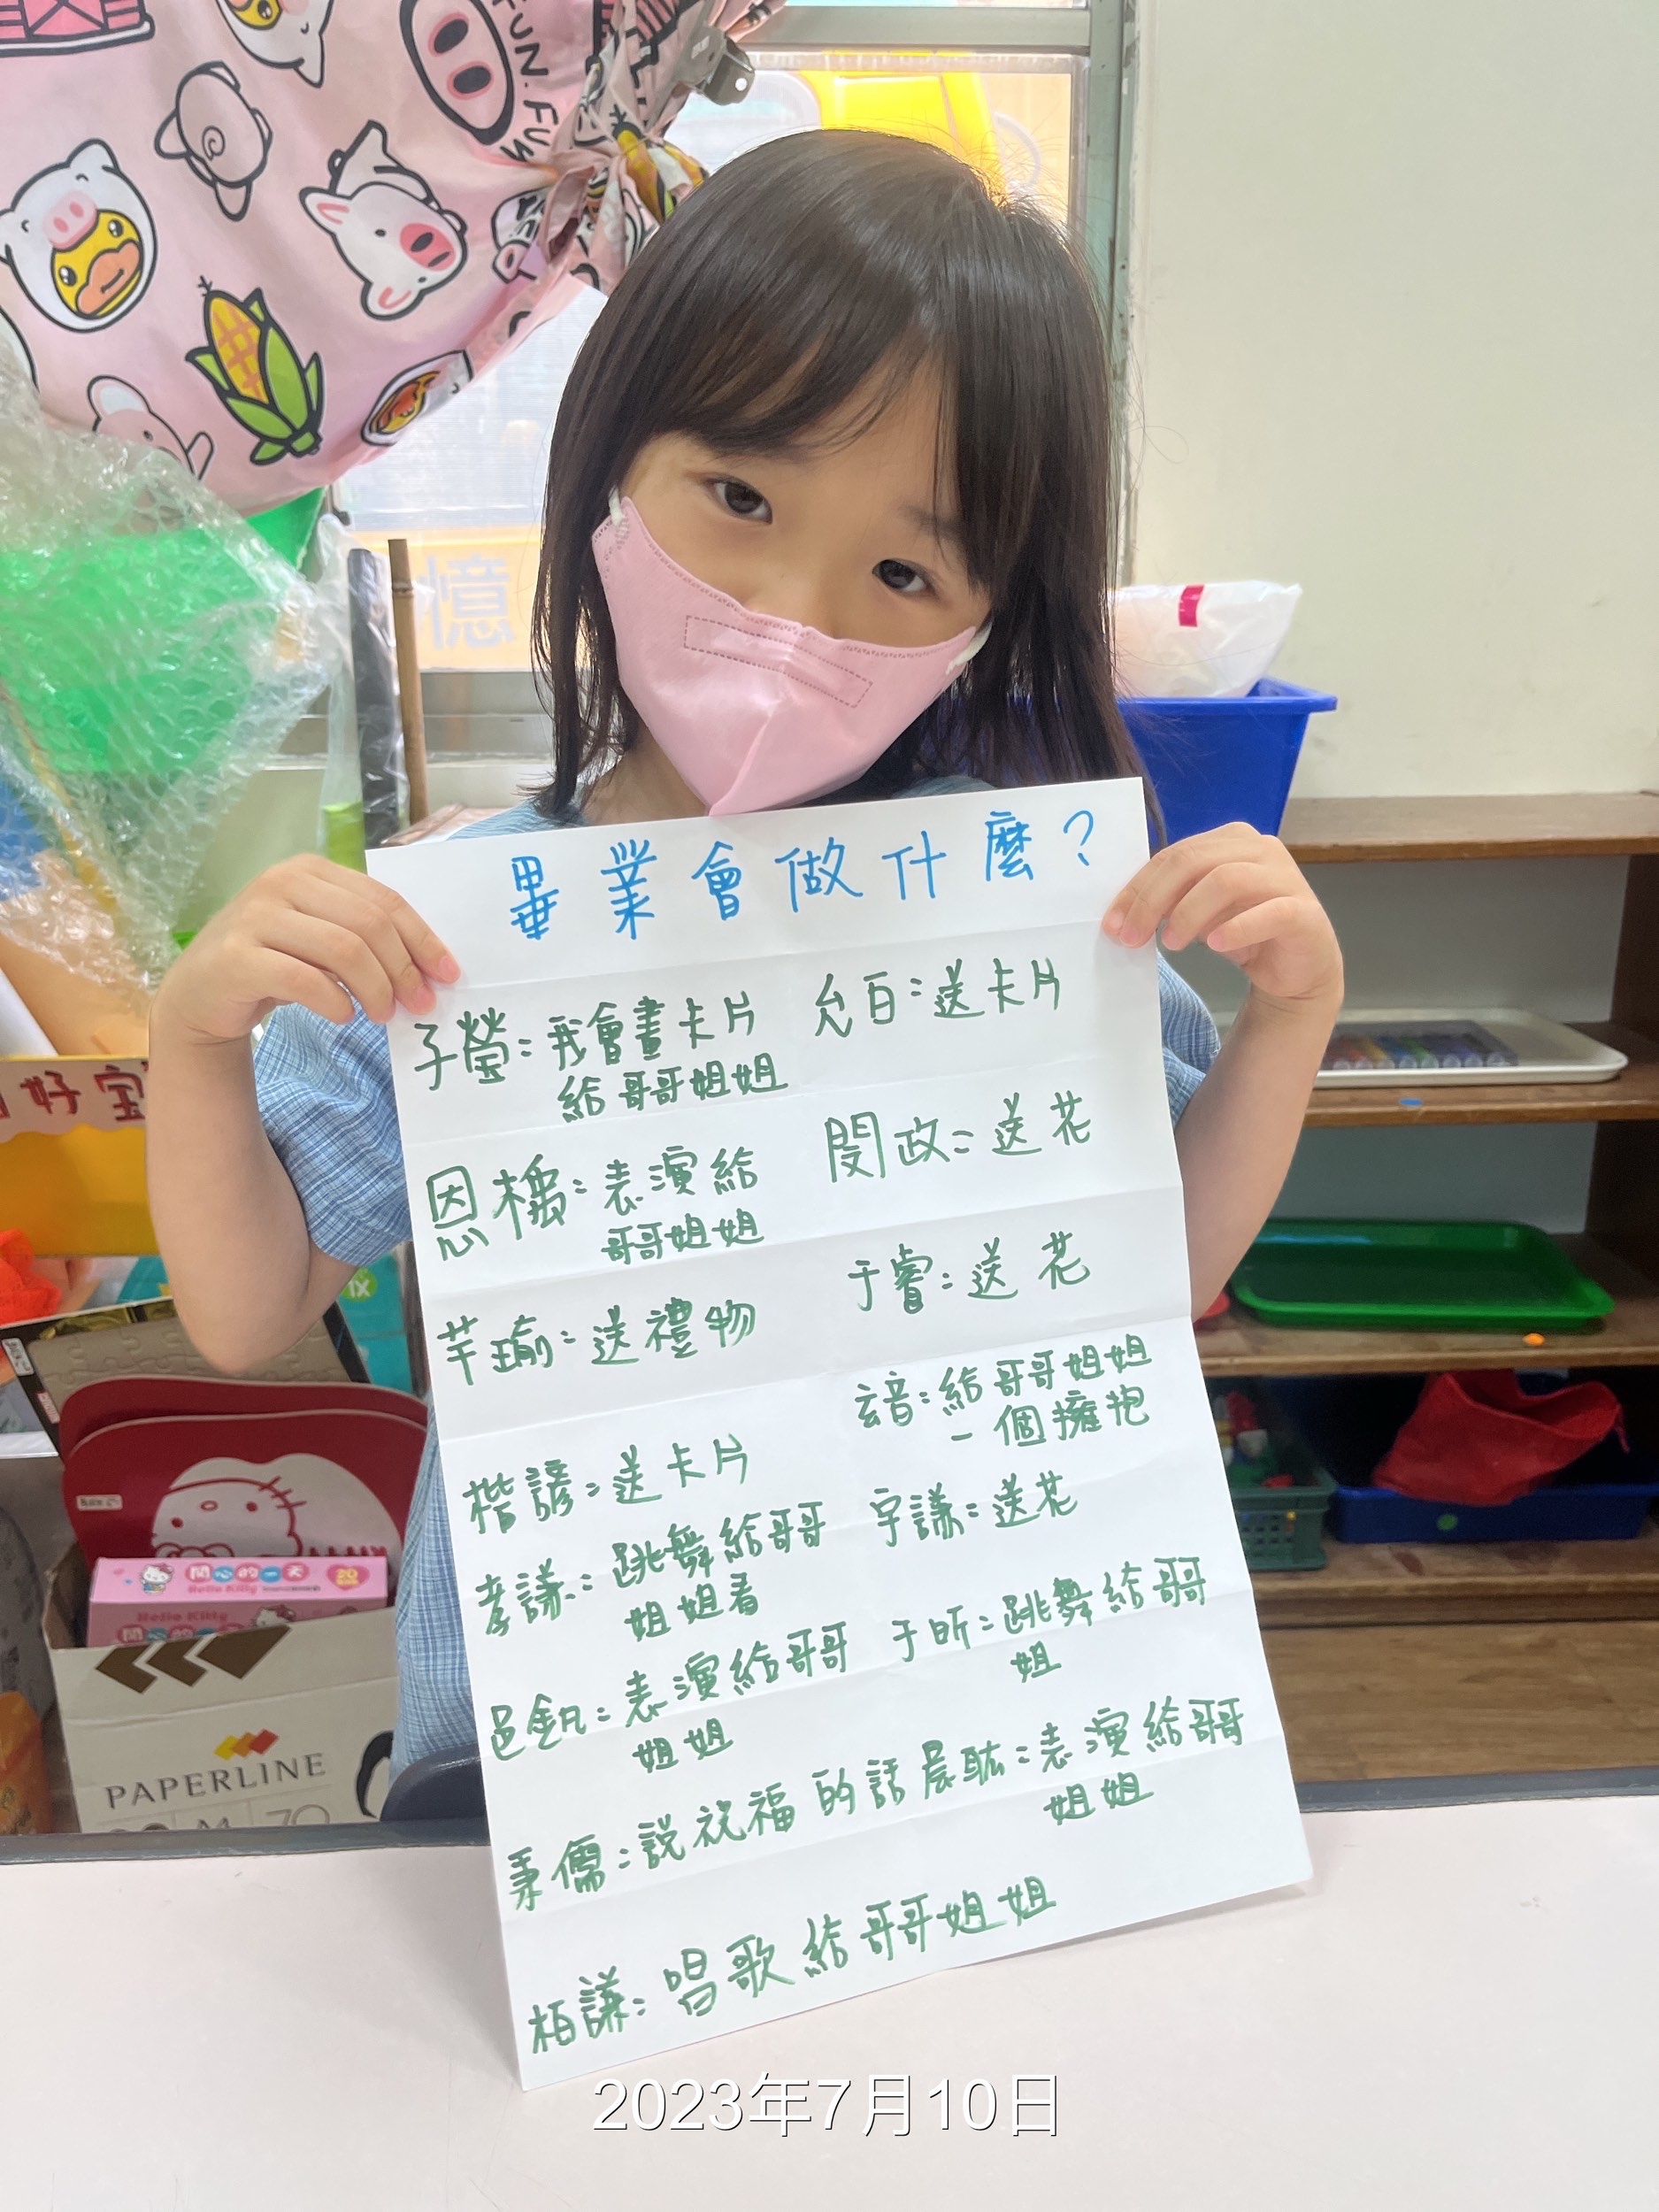 FUN.FUN
憶
畢業會做什麼？
子瑩：我會畫卡片
給哥哥姐姐
允百：送卡片
恩橋：表演給
哥哥姐姐
閔政：送花
芊瑜：送禮物
于睿：送花
玄音：給哥哥姐姐
一個擁抱
楷諺：送卡片
宇謙：送花
孝謙：跳舞給哥哥
姐姐看
于昕：跳舞給哥哥
姐
邑釩：表演給哥哥
姐姐
秉儒：說祝福的話
晨耾：表演給哥哥
姐姐
柏謙：唱歌給哥哥姐姐
好宝
開心的一天
Hello Kitty
20
Hello Kitty
PAPERLINE
70
1X
2023年7月10日